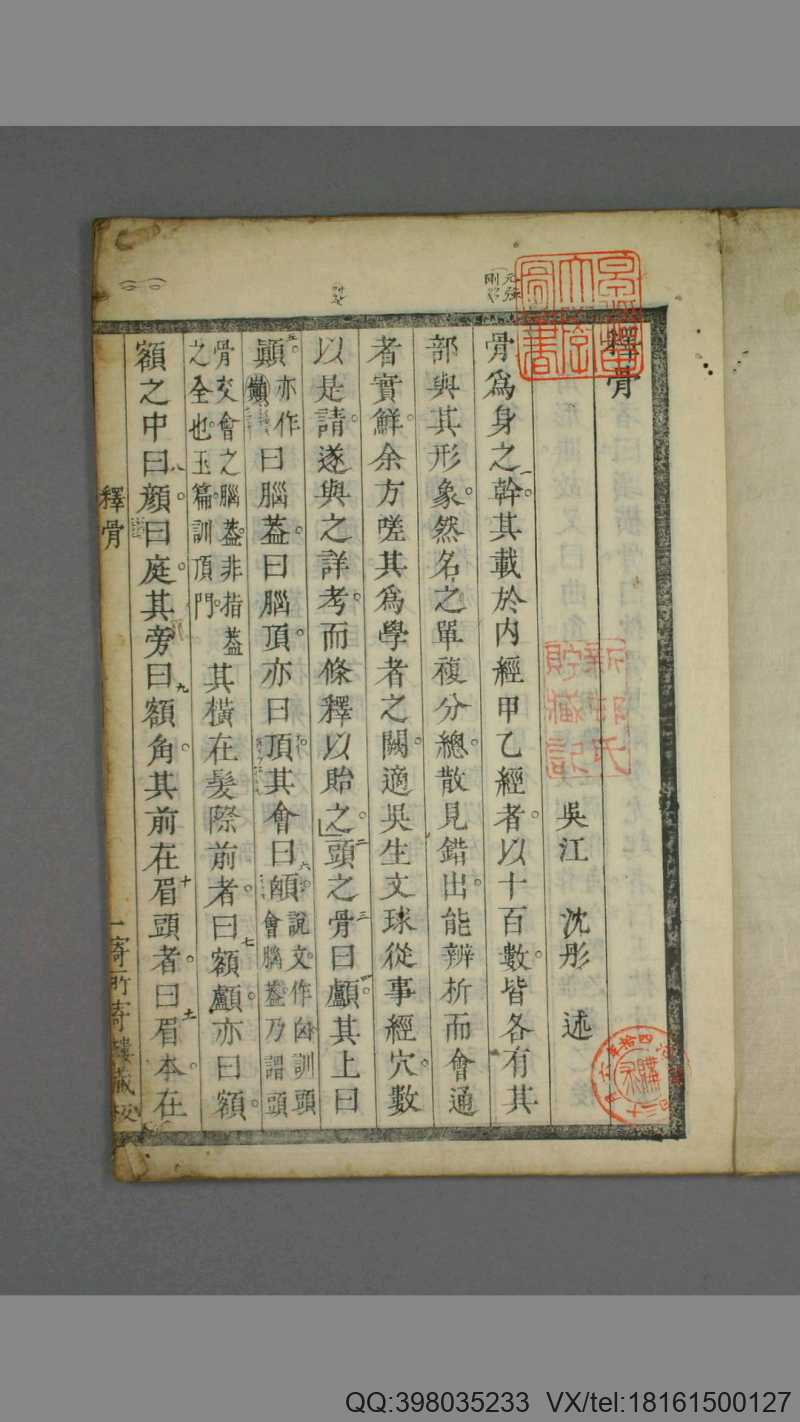 釋骨
吳江 沈彤 述
骨為身之幹其載於內經甲乙經者以十百數皆各有其
部與其形象然名之單複分總散見錯出能辨析而會通
者實鮮余方嗟其為學者之闕適吳生文球從事經穴數
以是請遂與之詳考而條釋以貽之頭之骨曰顱其上曰
顛亦作巔曰腦葢曰腦頂亦曰頂其會曰𩕄說文作囟訓頭會腦葢乃謂頭
骨交會之腦葢非指葢之全也玉篇訓頂門其橫在髮際前者曰額顱亦曰額
額之中曰顔曰庭其旁曰額角其前在眉頭者曰眉本在
釋骨
一
寄所寄樓藏
QQ:398035233 VX/tel:18161500127